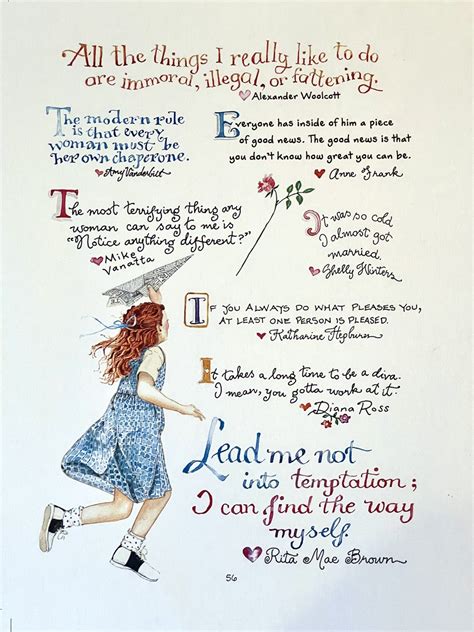 All the things I really like to do
are immoral, illegal, or fattening.
Alexander Woolcott
The modern rule
is that every
woman must be
her own chaperone.
Amy Vanderbilt
Everyone has inside of him a piece
of good news. The good news is that
you don't know how great you can be.
Anne Frank
The most terrifying thing any
woman can say to me is
"Notice anything different?"
Mike
Vanatta
It was so cold
I almost got
married.
Shelly Winters
If you always do what pleases you,
at least one person is pleased.
Katharine Hepburn
It takes a long time to be a diva.
I mean, you gotta work at it.
Diana Ross
Lead me not
into temptation;
I can find the way
myself.
Rita Mae Brown
56